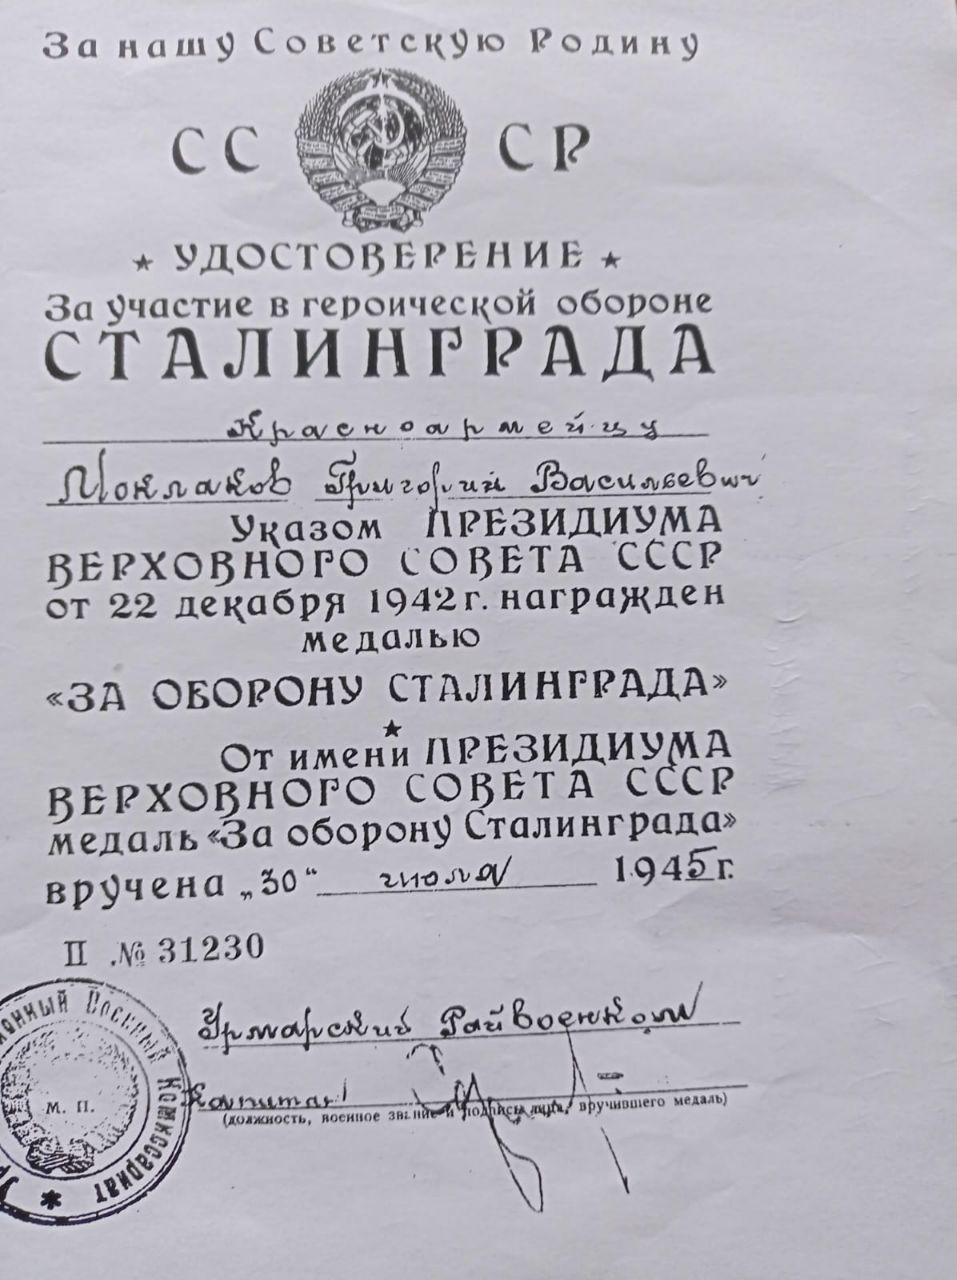 За нашу Советскую Родину
СС СР
★ УДОСТОВЕРЕНИЕ ★
За участие в героической обороне
СТАЛИНГРАДА
Красноармейцу
Моклаков Григорий Васильевич
Указом ПРЕЗИДИУМА
ВЕРХОВНОГО СОВЕТА СССР
от 22 декабря 1942 г. награжден
медалью
«ЗА ОБОРОНУ СТАЛИНГРАДА»
★
От имени ПРЕЗИДИУМА
ВЕРХОВНОГО СОВЕТА СССР
медаль «За оборону Сталинграда»
вручена „30“ июля 1945 г.
II № 31230
Урмарский Райвоенком
Капитан
(должность, военное звание и подпись лица, вручившего медаль)
Военный Комиссариат
М. П.